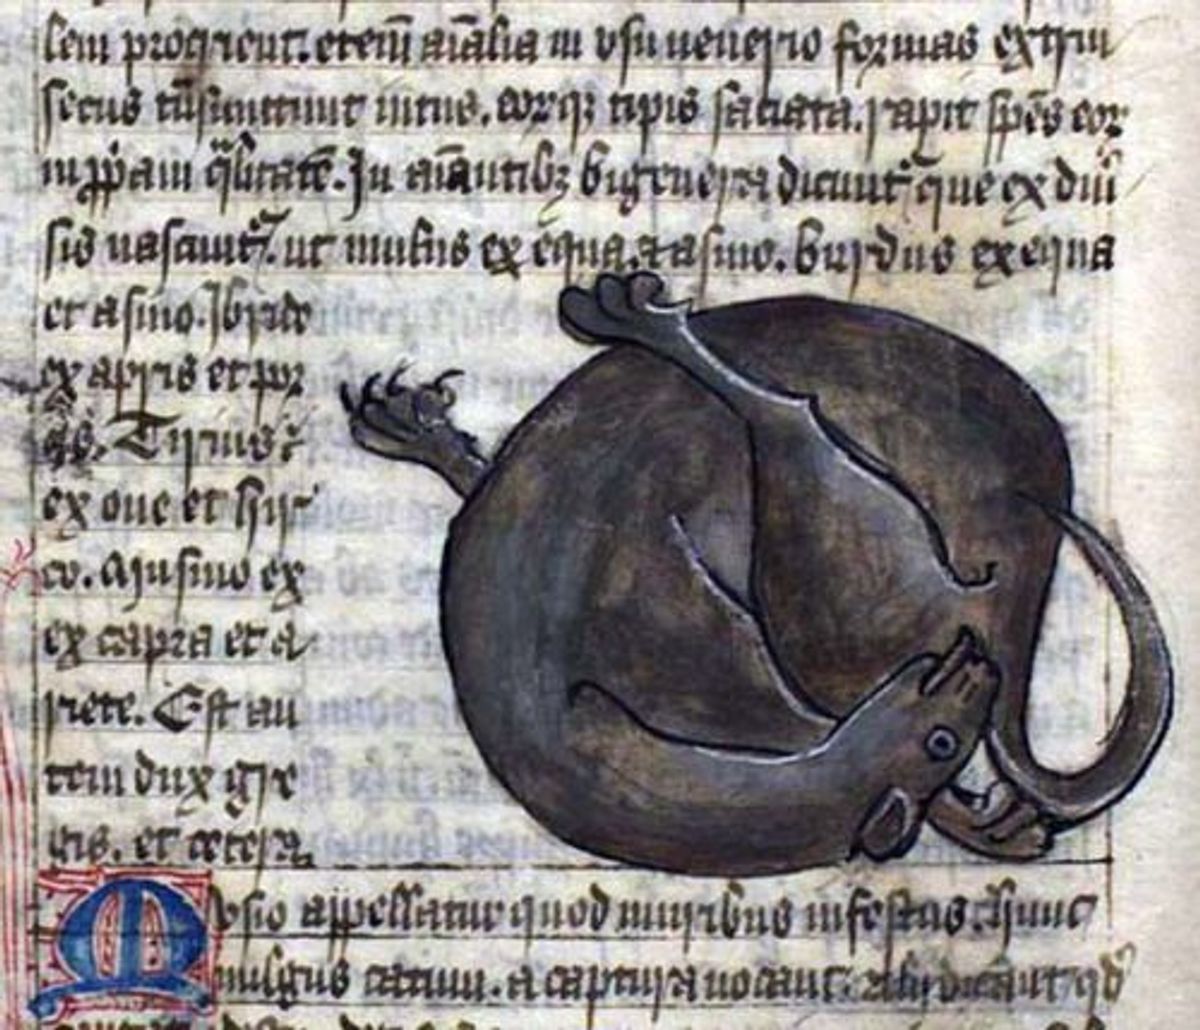 lem proiciunt. eteni aīalia in usu uenerio formas extrin
secus tn̄smittunt intus. eorq; tipis saciata. rapit sp̄es eor
in pp̄am q̄litatē. In aīantib; bigenera dicunt̄ que ex diui
sis nascunt̄. ut mulus ex equa. et asino. burdus ex equa
et asino. Ibride
ex apris et por
cis. Tirius
ex oue et hir
co. Musino ex
ex capra et a
riete. Est au
tem dux gre
gis. et cetera.
Musio appellatur quod muribus infestus. hunc
uulgus catum. a captura uocant. alii dicunt qd